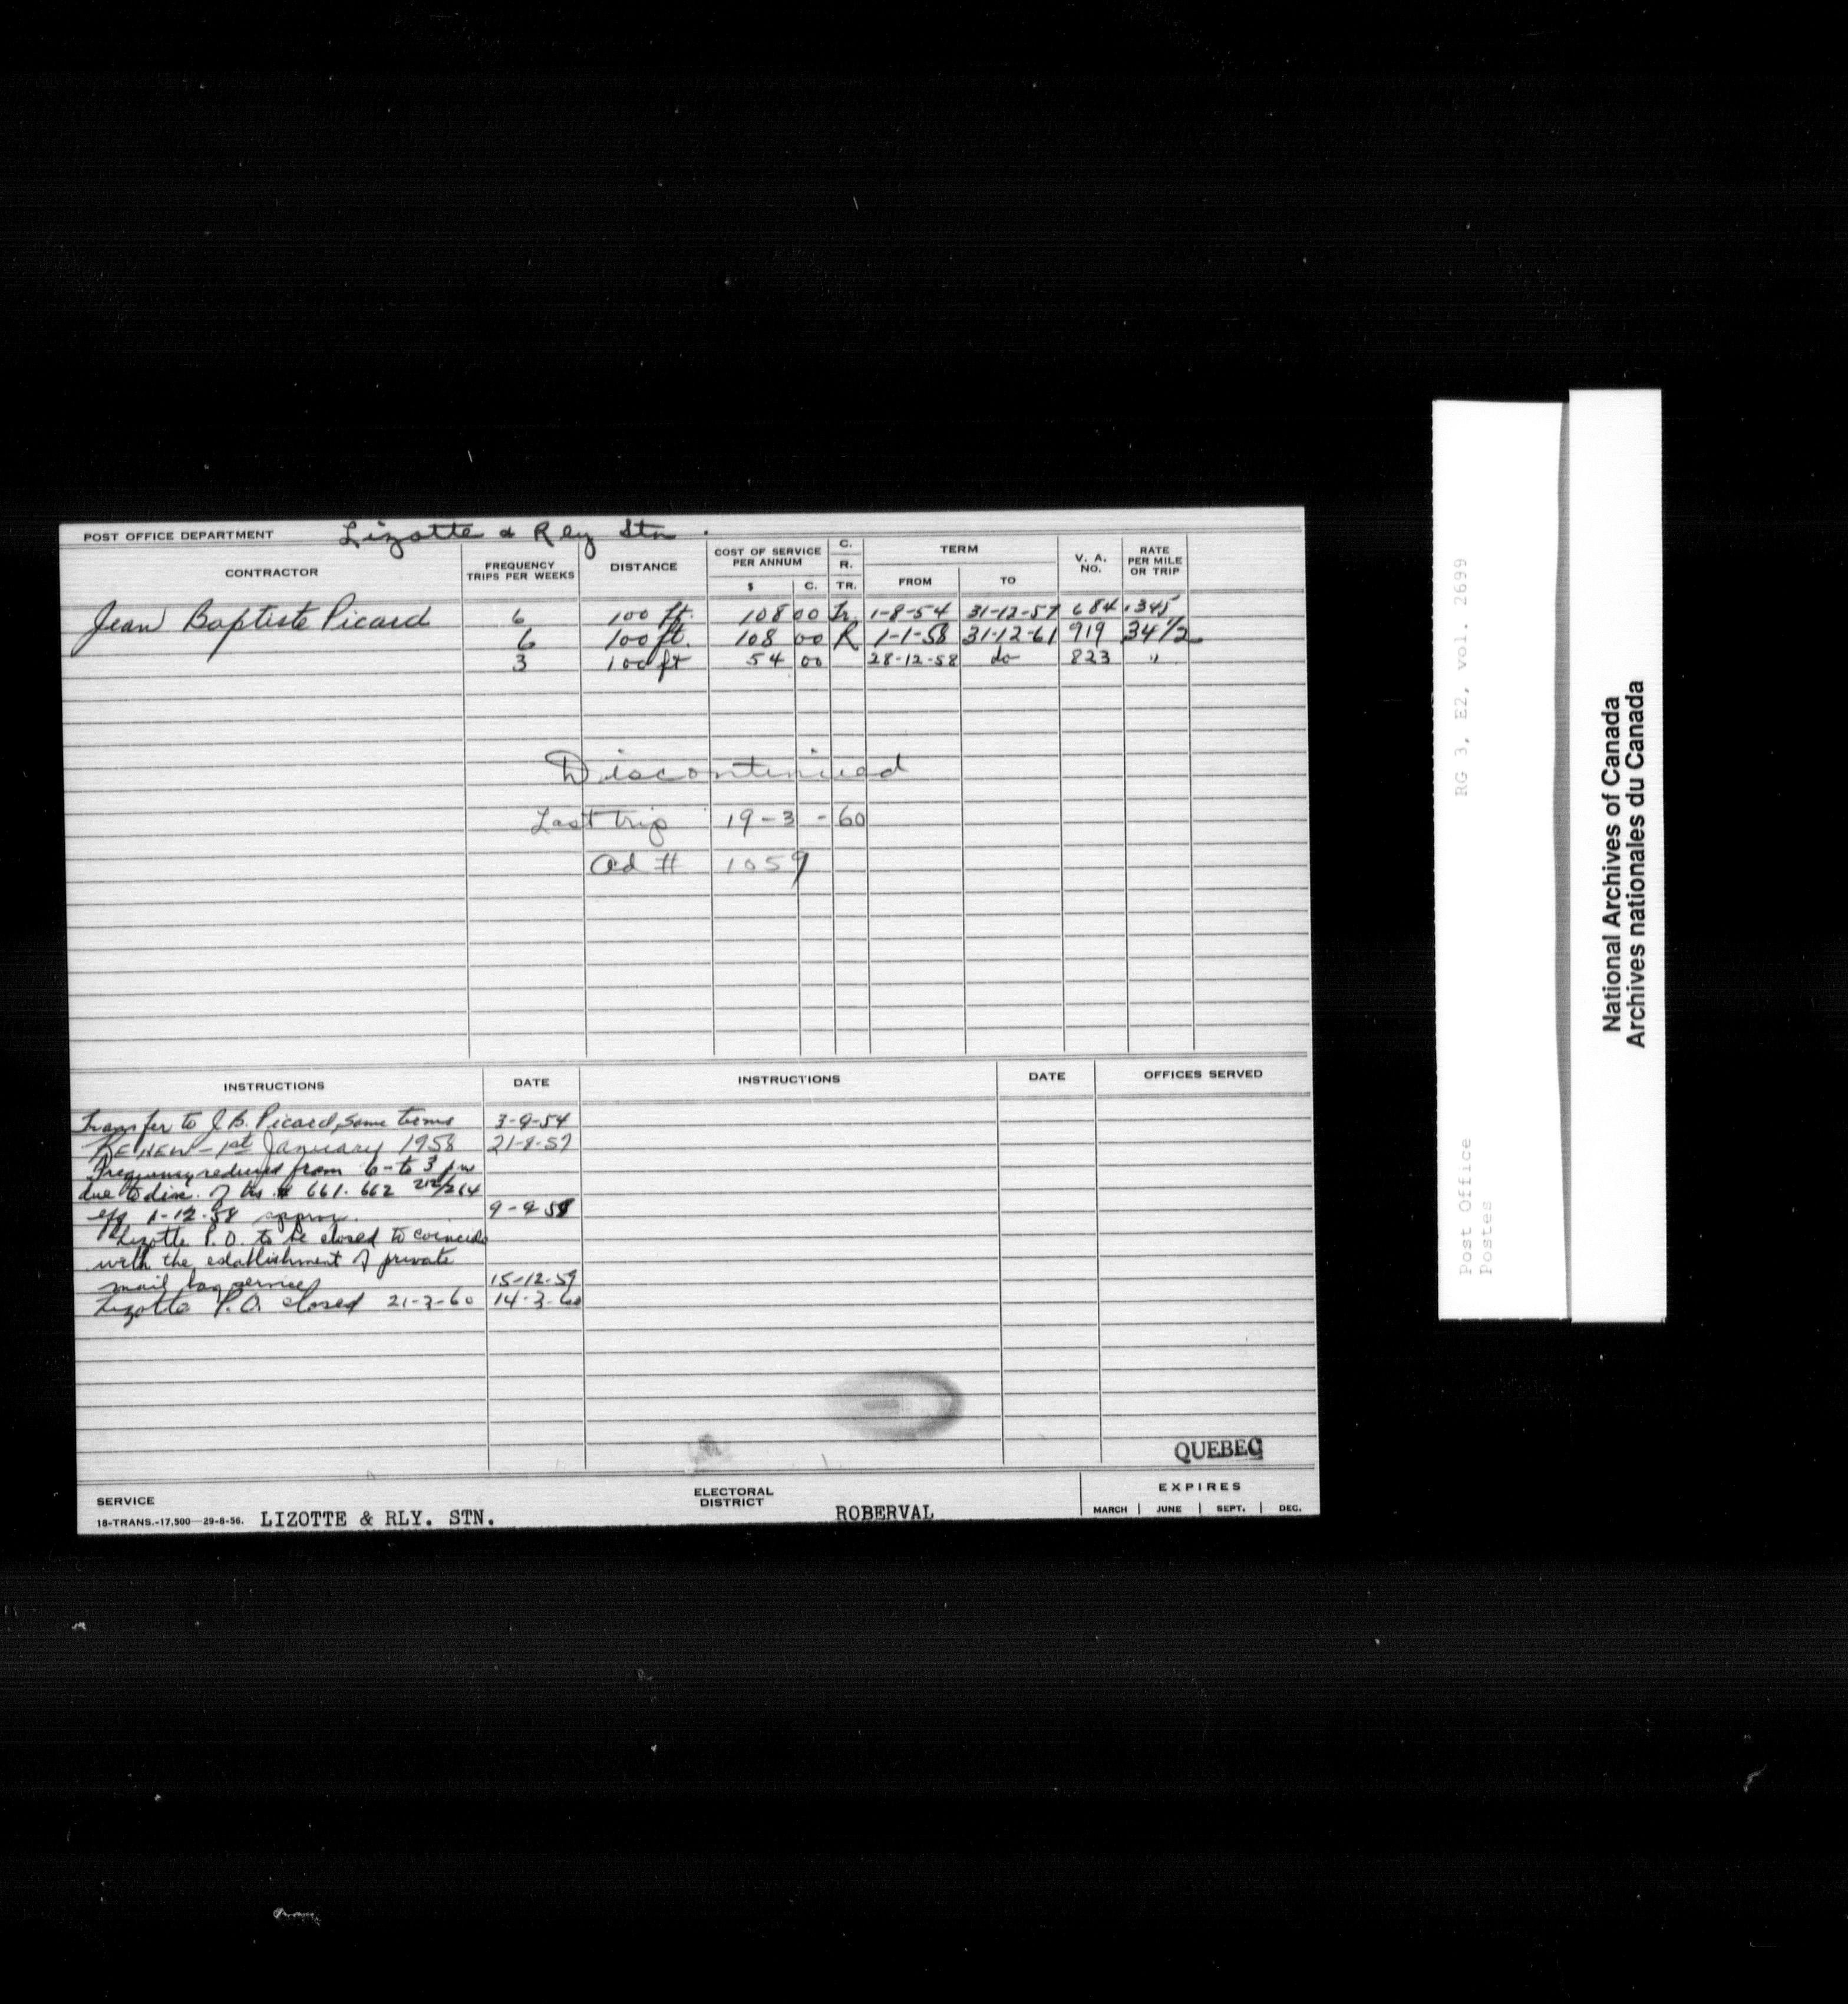 POST OFFICE DEPARTMENT Lizotte & Rly Stn.
CONTRACTOR FREQUENCY TRIPS PER WEEKS DISTANCE COST OF SERVICE PER ANNUM $ C. C. R. TR. TERM FROM TO V. A. NO. RATE PER MILE OR TRIP
Jean Baptiste Picard 6 100 ft. 108 00 Tr. 1-8-54 31-12-57 684 .345
6 100 ft. 108 00 R 1-1-58 31-12-61 919 34 1/2
3 100 ft 54 00 28-12-58 do 823 "
Discontinued
Last trip 19-3-60
Ad # 1059
INSTRUCTIONS DATE INSTRUCTIONS DATE OFFICES SERVED
Transfer to J.B. Picard, same terms 3-9-54
RENEW - 1st January 1958 21-8-57
Frequency reduced from 6 - to 3
due to disc. of trs # 661. 662 212/214
eff 1-12-58 approx. 9-9-58
Lizotte P.O. to be closed to coincide
with the establishment of private
mail bag services 15-12-59
Lizotte P.O. closed 21-3-60 14-3-60
QUEBEC
SERVICE
18-TRANS.-17,500—29-8-56. LIZOTTE & RLY. STN.
ELECTORAL DISTRICT ROBERVAL
EXPIRES
MARCH | JUNE | SEPT. | DEC.
RG 3, E2, vol. 2699
Post Office
Postes
National Archives of Canada
Archives nationales du Canada